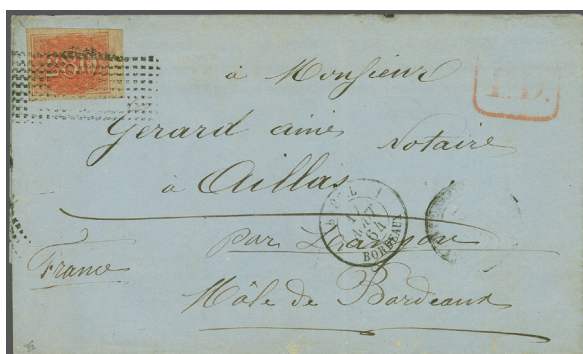 280
à Monsieur
P.D.
Gerard ainé Notaire
à Aillas
17
AOUT
64
BORDEAUX
par Langon
France
Môle de Bordeaux